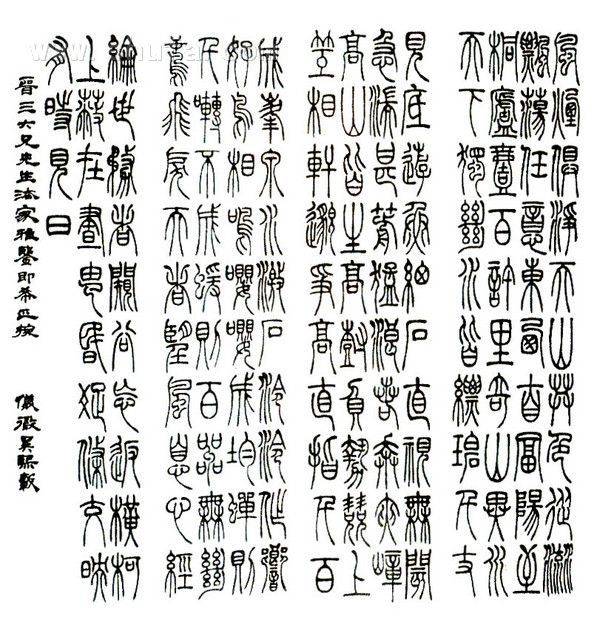 風煙俱淨天山共色從流
飄蕩任意東西自富陽至
桐廬壹百許里奇山異水
天下獨絕水皆縹碧千丈
見底遊魚細石直視無閡
急湍甚箭猛浪若奔夾嶂
高山皆生高樹負勢競上
互相軒邈爭高直指千百
成峯泉水激石泠泠作響
好鳥相鳴嚶嚶成均蟬則
千囀不窮猨則百叫無絕
鳶飛戾天者望峯息心經
綸世務者闚谷忘返橫柯
上蔽在晝猶昏疏條交映
有時見日
晉三六兄先生法家雅鑒即希正捥
儀徵吳熙載